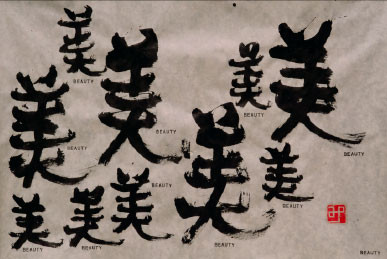 美
BEAUTY
美
BEAUTY
美
BEAUTY
美
BEAUTY
美
BEAUTY
美
BEAUTY
美
BEAUTY
美
BEAUTY
美
BEAUTY
美
BEAUTY
BEAUTY